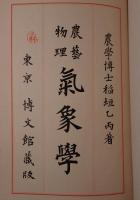 農學博士稻垣乙丙著
農藝
物理
氣象學
東京 博文館藏版